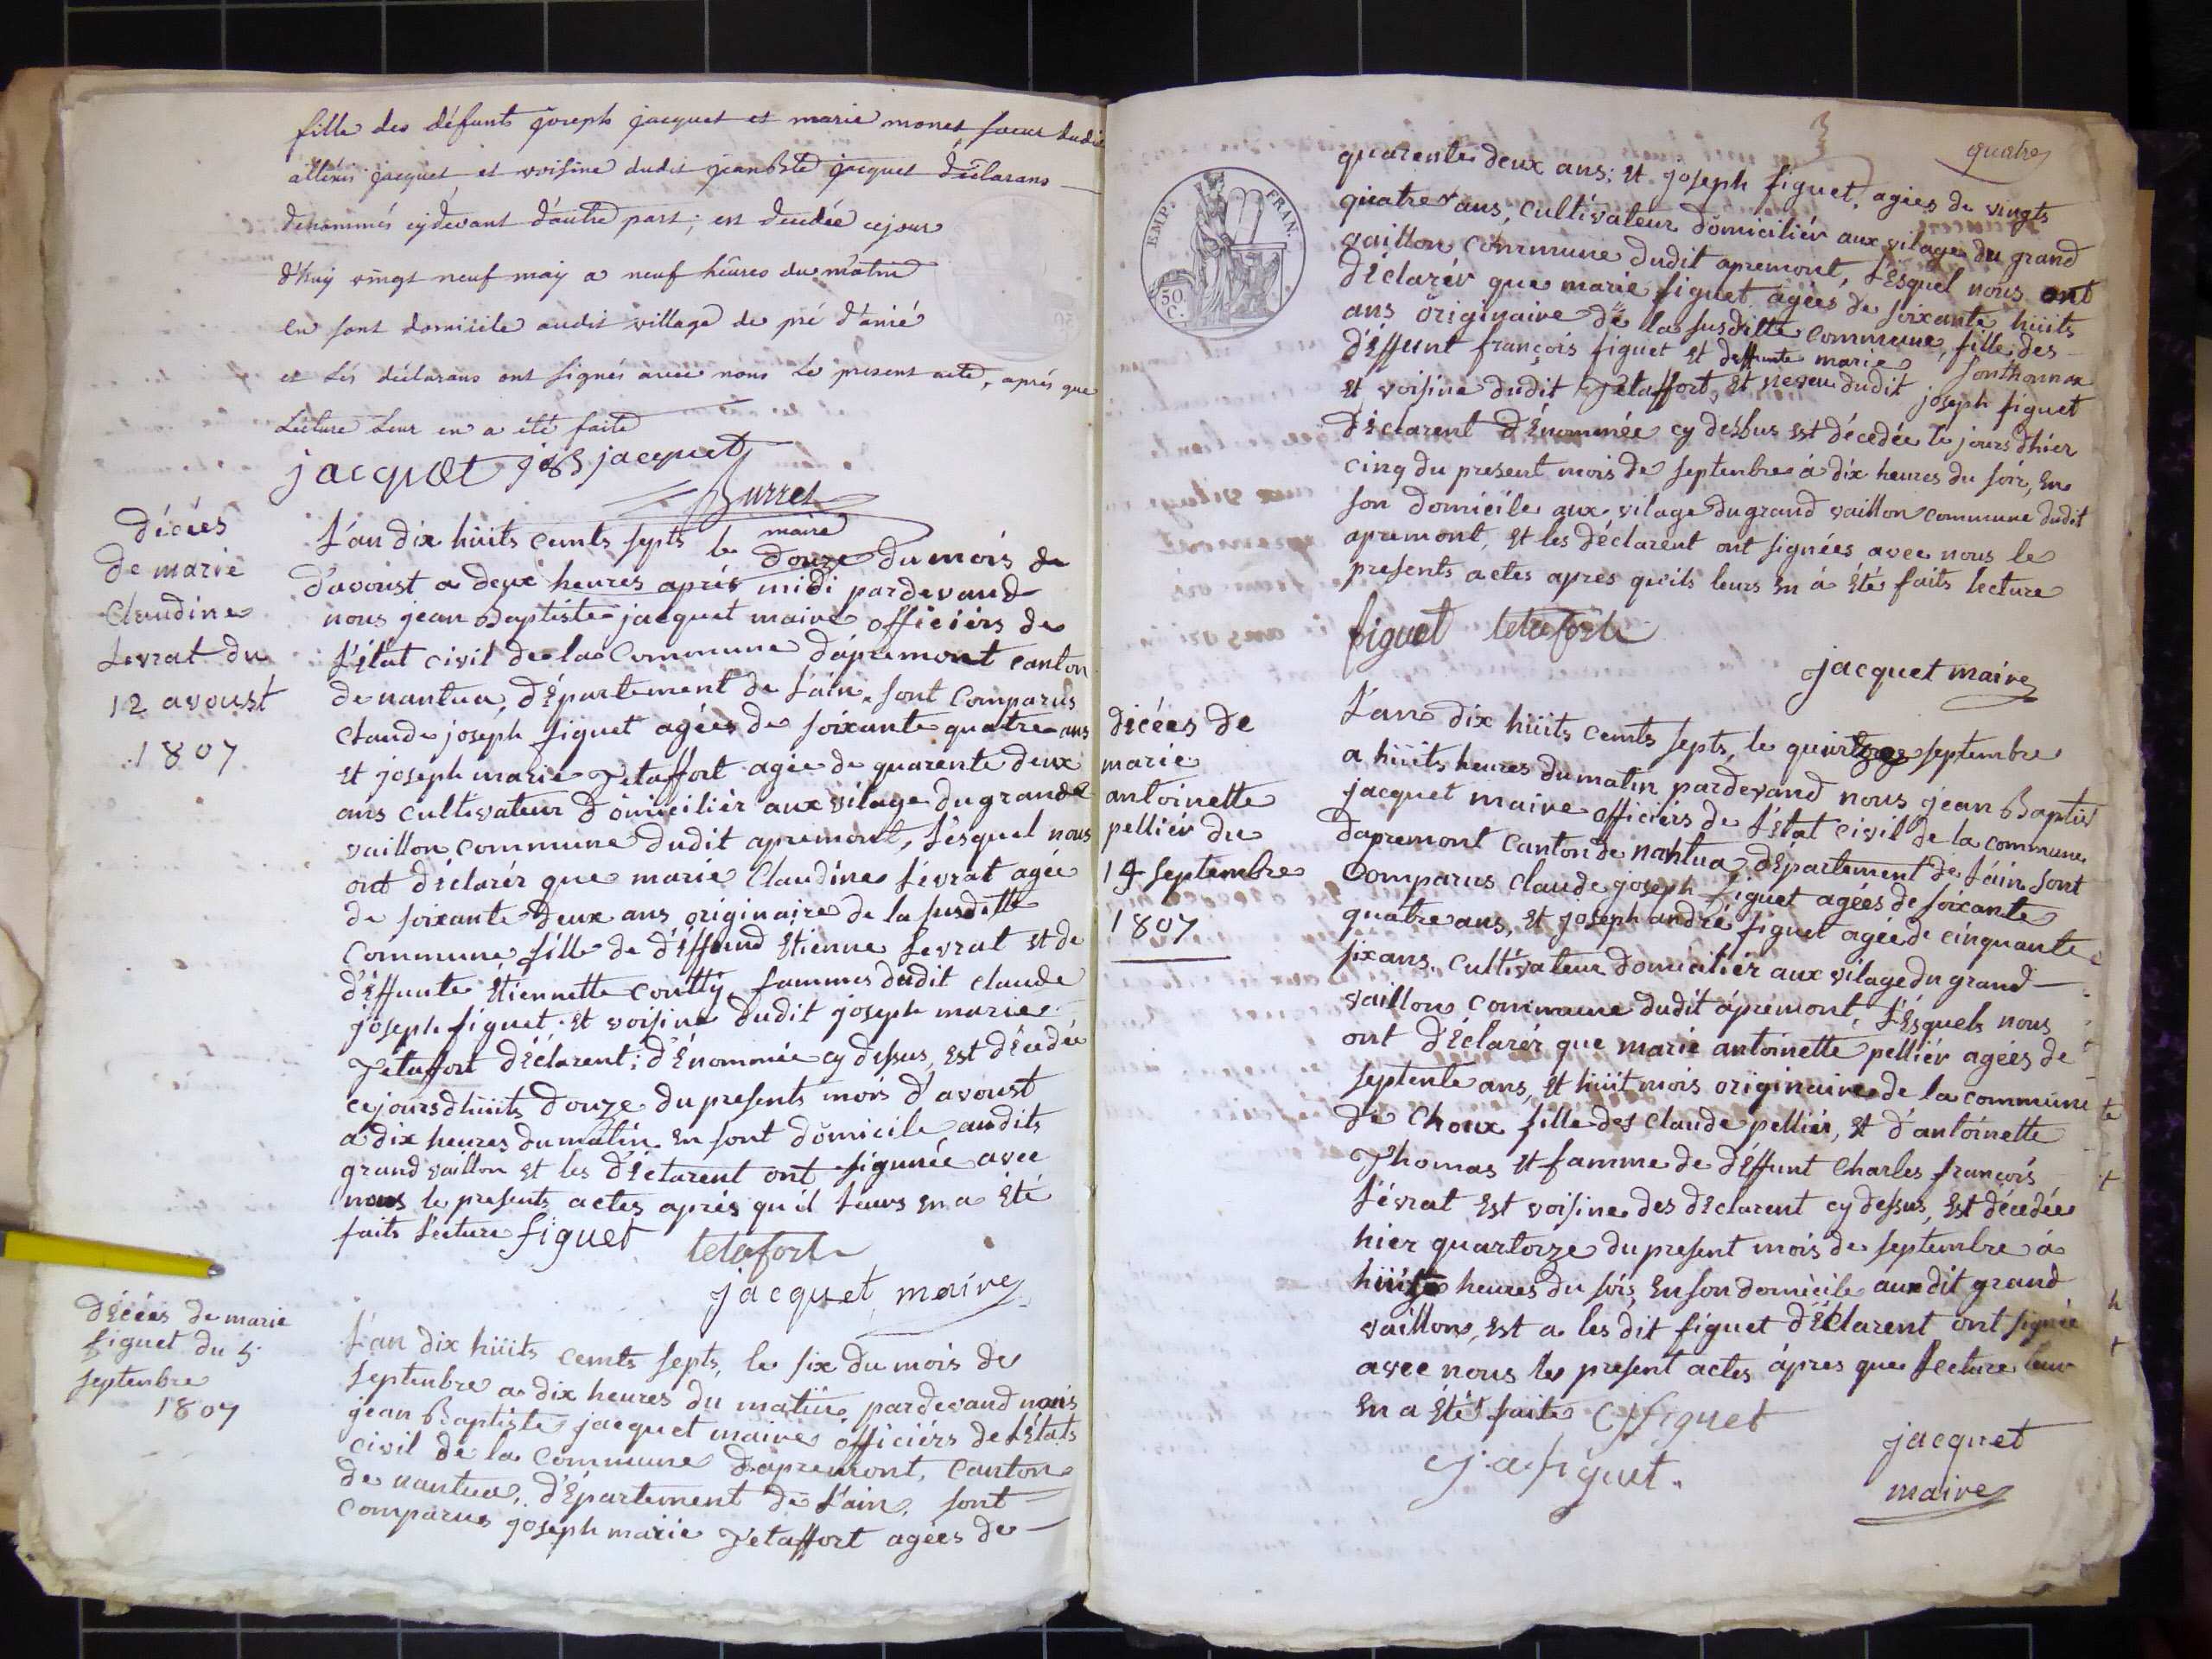 fille des défunts joseph jacquet et marie monet soeur dudit
allexis jacquet et voisine dudit jean Bte jacquet déclarans
denommés cydevant d'autre part; est decedée cejour
d'huy vingt neuf may a neuf heures du matin
en sont domicile audit village de pré d'anié
et les déclarans ont signés avec nous le present acte, aprés que
lecture leur en a été faite
jacquet jB jacquet
Burret
maire
décées
de marie
Claudine
Levrat du
12 avoust
1807
L'an dix hüits cemts septs le douze du mois de
d'avoust a deux heures aprés midi pardevand
nous jean Baptiste jacquet maire officiérs de
L'état civil de la Commune d'apremont canton
de nantua, dÉpartement de Lain sont Comparus
Claude joseph figuet agées de soixante quatre ans
Et joseph marie Tetaffort agée de quarente deux
ans cultivateur domiciliér aux vilage du grand
vaillon commune dudit apremont, Lesquel nous
ont déclarér que marie Claudine Levrat agée
de soixante deux ans originaire de la susditte
Commune fille de d'Éffund Étienne Levrat Et de
d'Éffunte Étiennette coutty fammes dudit claude
joseph figuet Et voisine dudit joseph marie
Tetaffort dÉclarent; dÉnommée cy dessus, Est dÉcedée
cejours dhüits douze du presents mois d'avoust
a dix heures du matin En sont domicile audits
grand vaillon Et les dÉclarent ont signnée avec
nous le presents actes aprés qu'il Leurs En a Été
faits Lecture figuet
tetafort
jacquet maire
dÉcées de marie
figuet du 5
septembre
1807
L'an dix hüits cemts septs, le six du mois de
septembre a dix heures du matin pardevand nous
jean Baptiste jacquet maire officiérs de LÉtats
civil de la Commune dapremont, Canton
de nantua, dÉpartement de Lain, sont
comparus joseph marie Tetaffort agées de
quatre
quarente deux ans; Et joseph figuet, agées de vingts
quatre ans, cultivateur domiciliér aux vilage du grand
vaillon commune dudit apremont, LEsquel nous ont
dÉclarér que marie figuet agées de soixante hüits
ans originaire de la susditte commune, fille des
d'Éffunt françois figuet Et deffunte marie Sonthonnax
Et voisine dudit Tetaffort, Et neveu dudit joseph figuet
dÉclarent dÉnommée cy dessus Est décedée le jours dhier
cinq du present mois de septembre à dix heures du soir, En
son domicile aux vilage du grand vaillon commune dudit
apremont, Et les déclarent ont signées avec nous le
presents actes apres qu'ils leurs En à Étés faits lecture
figuet tetafort
jacquet maire
dÉcées de
marie
antoinette
pelliér du
14 septembre
1807
L'an dix hüits cemts septs, le septembre
a hüits heures du matin pardevand nous jean Baptis
jacquet maire officiérs de LÉtat civil de la commune
dapremont Canton de nantua dÉpartement de Lain sont
Comparus claude joseph figuet agées de soixante
quatre ans, Et joseph andré figuet agée de cinquante
six ans, cultivateur domiciliér aux vilage du grand
vaillon commune dudit apremont, LEsquels nous
ont dÉclarér que marie antoinette pelliér agées de
septente ans, Et hüit mois originaire de la commune
de Choux, fille des claude pelliér, Et d'antoinette
Thomas Et famme de d'Éffunt Charles françois
Lévrat Est voisine des dÉclarent cy dessus, Est décedée
hier quartorze du present mois de septembre à
hüits heures du soir, En son domicile aux dit grand
vaillon, Est a les dit figuet dÉclarent ont signée
avec nous les present actes àpres que Lecture leur
En a Étés faite Cjfiguet
j.a.figuet.
jacquet
maire
EMP. FRAN.
50
C.